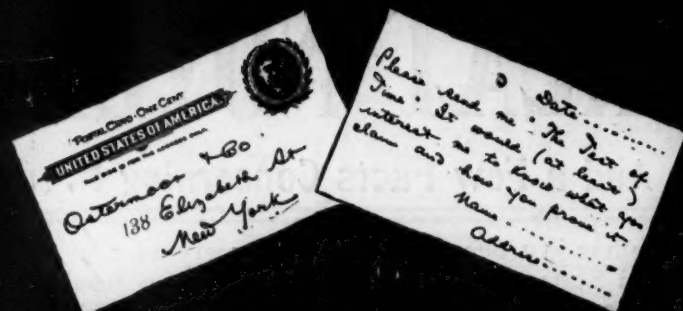 POSTAL CARD · ONE CENT
UNITED STATES OF AMERICA.
THIS SIDE IS FOR THE ADDRESS ONLY.
Ostermoor & Co
138 Elizabeth St
New York
Date..........
Please send me "The Test of
Time." It would (at least)
interest me to know what you
claim and how you prove it.
Name..........
Address..........